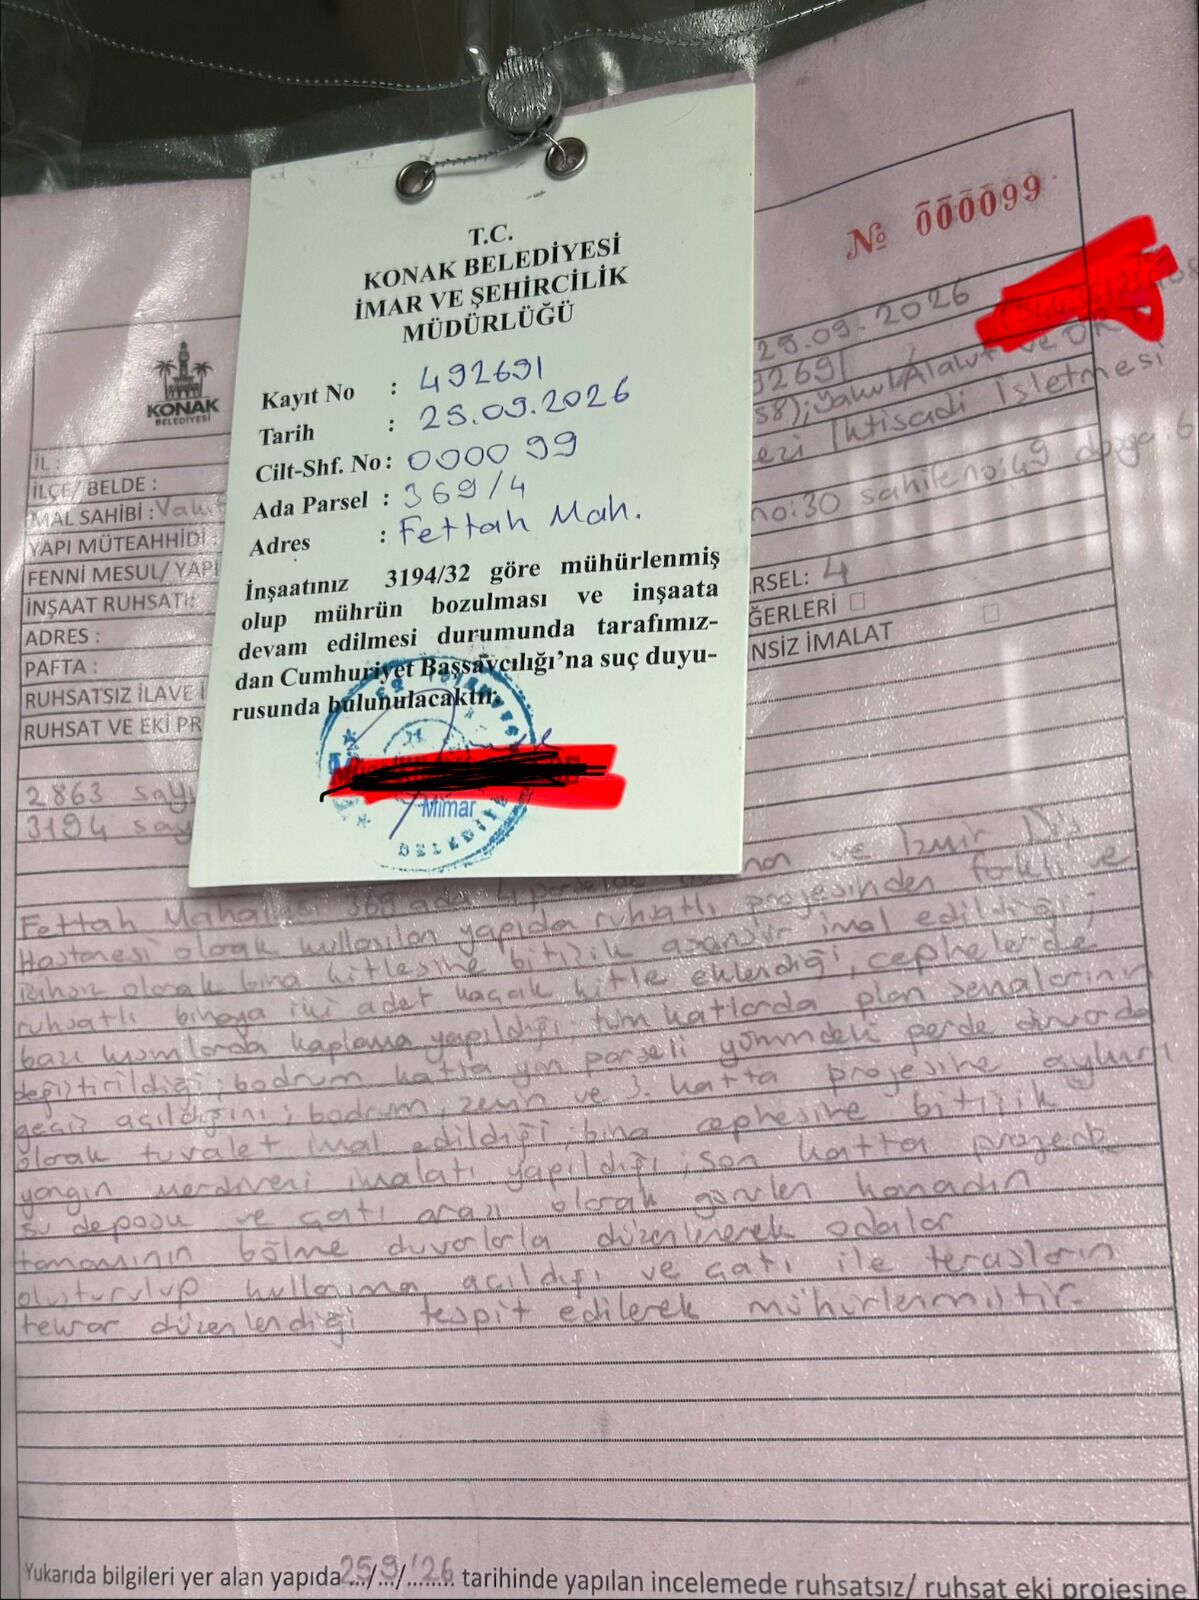 T.C.
KONAK BELEDİYESİ
İMAR VE ŞEHİRCİLİK
MÜDÜRLÜĞÜ
Kayıt No : 492691
Tarih : 25.09.2026
Cilt-Shf. No: 0000 99
Ada Parsel : 369/4
Adres : Fettah Mah.
İnşaatınız 3194/32 göre mühürlenmiş
olup mührün bozulması ve inşaata
devam edilmesi durumunda tarafımız-
dan Cumhuriyet Başsavcılığı'na suç duyu-
rusunda bulunulacaktır.
Mimar
№ 000099
KONAK
BELEDİYESİ
25.09.2026
92691
58);
İktisadi İşletmesi
no:30 sahife no:49 dosya:6
İL :
İLÇE/ BELDE :
MAL SAHİBİ : Vak
YAPI MÜTEAHHİDİ :
FENNİ MESUL/ YAPI
İNŞAAT RUHSATI:
ADRES :
PAFTA :
RSEL: 4
RUHSATSIZ İLAVE İ
ĞERLERİ
RUHSAT VE EKİ PR
NSİZ İMALAT
2863 sayı
3194 say
Fettah Mahallesi 369 ada 4 parselde ve İzmir Diş
Hastanesi olarak kullanılan yapıda ruhsatlı projesinden farklı ve
olarak bina kitlesine bitişik asansör imal edildiği;
ruhsatlı binaya iki adet kaçak kitle eklendiği, cephelerde
bazı kısımlarda kaplama yapıldığı; tüm katlarda plan şemalarının
değiştirildiği; bodrum katta yan parseli yönündeki perde duvarda
geçiş açıldığını; bodrum, zemin ve 3. katta projesine aykırı
olarak tuvalet imal edildiği; bina cephesine bitişik
yangın merdiveni imalatı yapıldığı; son katta projede
su deposu ve çatı arası olarak görülen kanadın
tamamının bölme duvarlarla düzenlenerek odalar
oluşturulup kullanıma açıldığı ve çatı ile terasların
tekrar düzenlendiği tespit edilerek mühürlenmiştir.
Yukarıda bilgileri yer alan yapıda 25/9/'26 tarihinde yapılan incelemede ruhsatsız/ ruhsat eki projesine